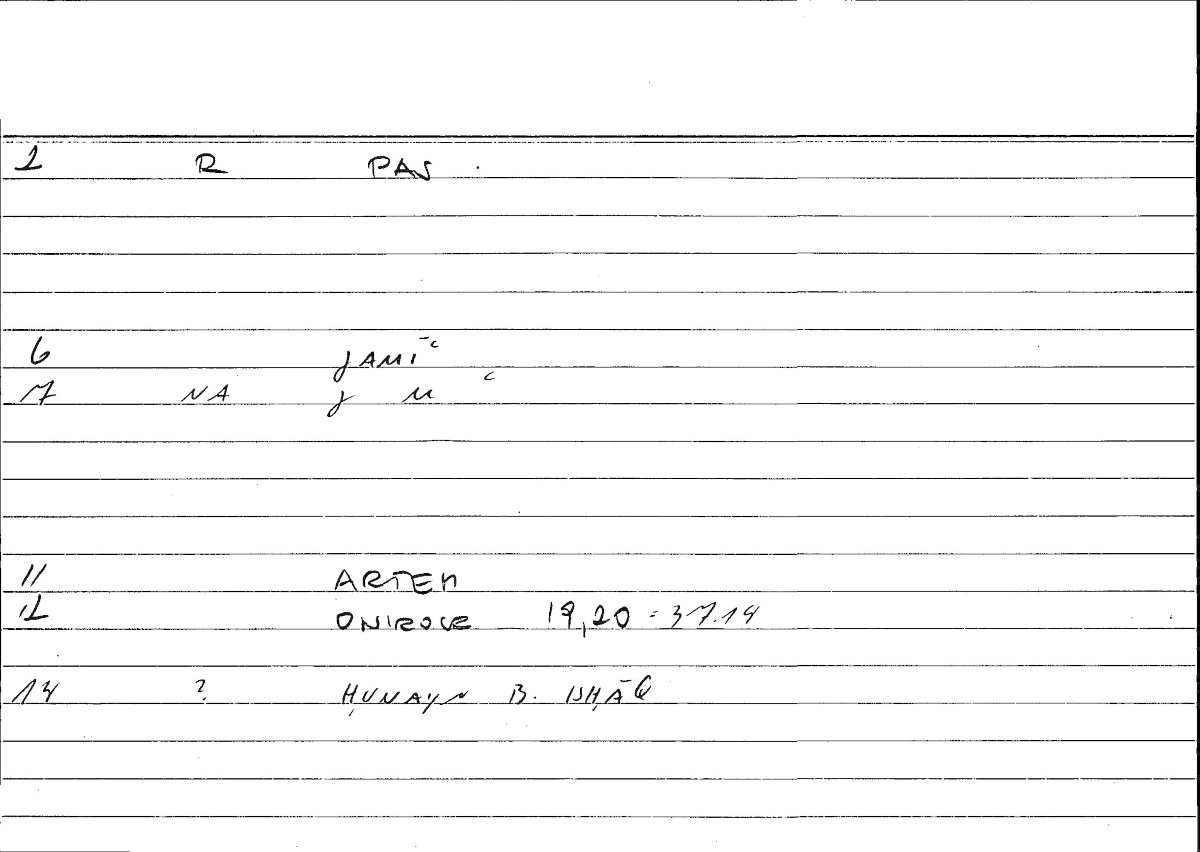 1 R PAS .
6 JAMĪʿ
7 NA J M ʿ
11 ARTEM
12 ONIROCR 19,20 = 37.14
14 ? ḤUNAYN B. ISḤĀQ